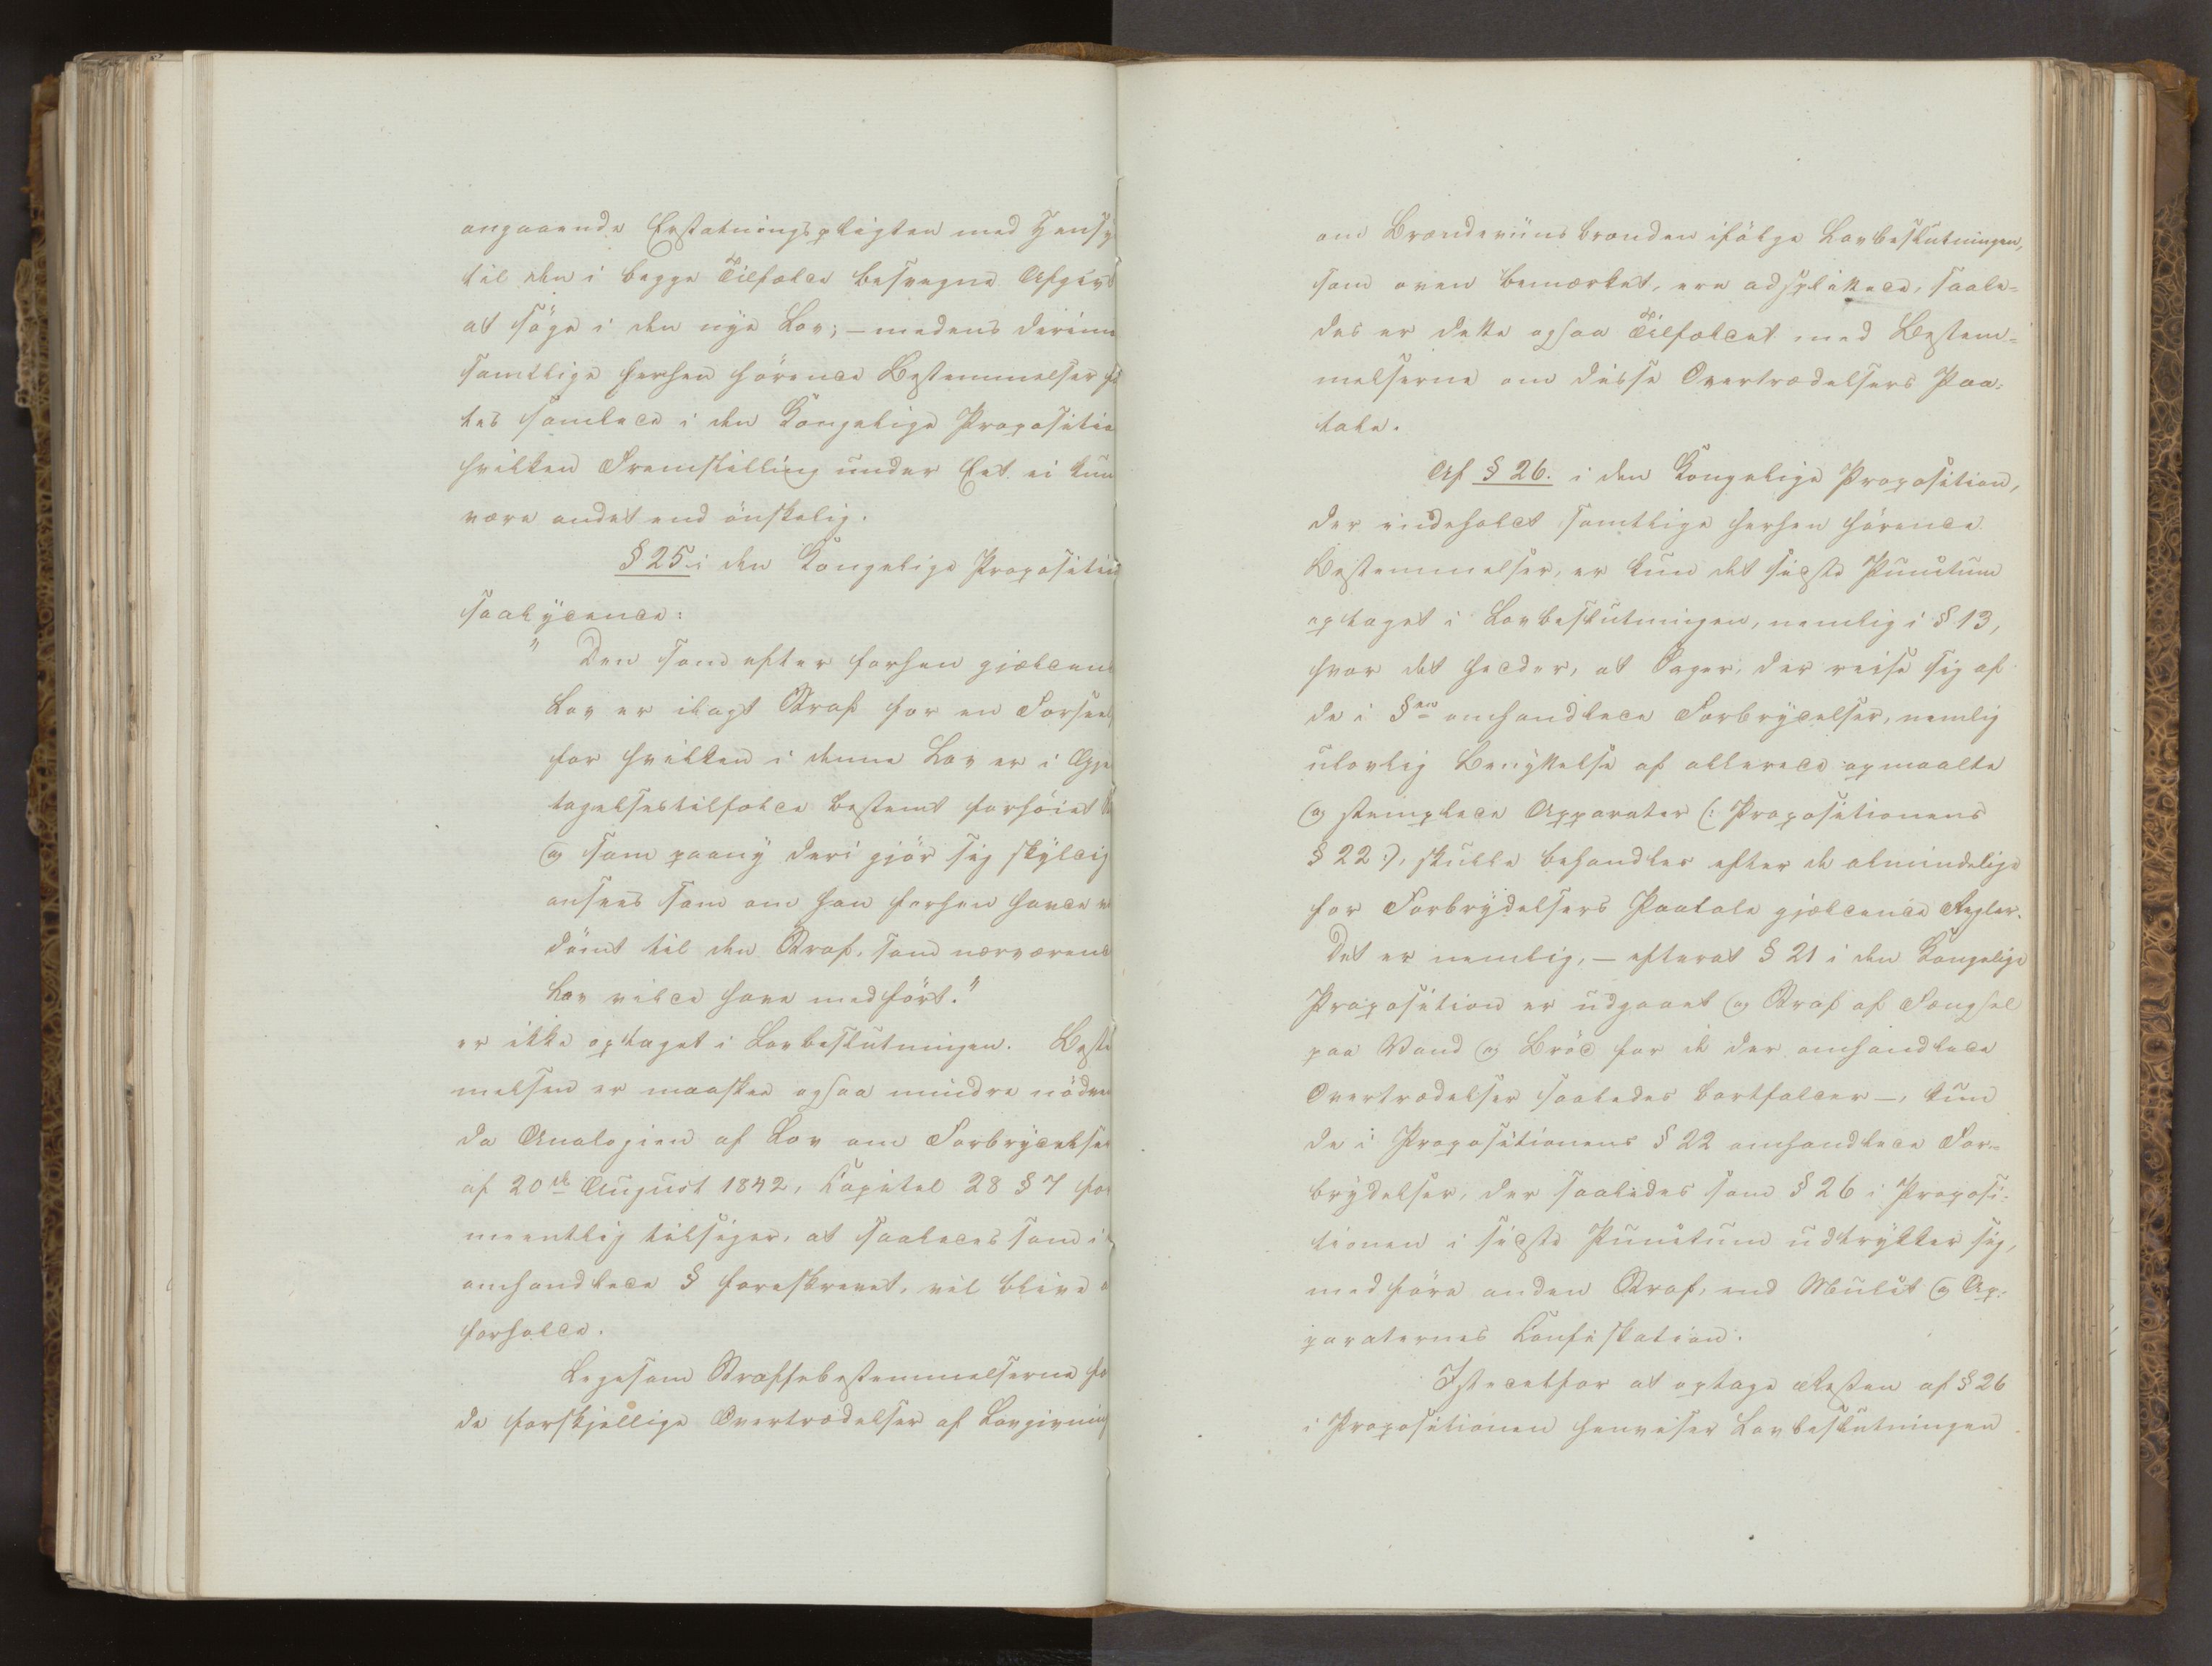 angaaende Erstatningspligten med Hensy
til den i begge Tilfælde besvegne Afgivt
at söge i den nye Lov; — medens derimo
samtlige herhen hörende Bestemmelser fi
tes samlede i den Kongelige Propositio
hvilken Fremstilling under Eet ei kun
være andet end önskelig.
§ 25 i den Kongelige Proposition
saalydende:
" Den som efter forhen gjældend
Lov er ilagt Straf for en Forseel
for hvilken i denne Lov er i Gje
tagelsestilfælde bestemt forhöiet St
og som paany deri gjör sig skyldig
ansees som om han forhen havde v
dömt til den Straf, som nærværend
Lov vilde have medfört."
er ikke optaget i Lovbeslutningen. Beste
melsen er maaskee ogsaa mindre nödven
da Analogien af Lov om Forbrydelser
af 20de August 1842, Capitel 28 § 7 for
meentlig tilsiger, at saaledes som i
omhandlede § foreskrevet, vil blive a
forholde.
Ligesom Straffebestemmelserne fo
de forskjellige Overtrædelser af Lovgivning
om Brændeviinsbrænden ifölge Lovbeslutningen,
som oven bemærket, ere adsplittede, saale-
des er dette ogsaa Tilfældet med Bestem-
melserne om disse Overtrædelsers Paa-
tale.
Af § 26. i den Kongelige Proposition,
der indeholdt samtlige herhen hörende
Bestemmelser, er kun det sidste Punctum
optaget i Lovbeslutningen, nemlig i § 13,
hvor det hedder, at Sager, der reise sig af
de i §en omhandlede Forbrydelser, nemlig
ulovlig Benyttelse af allerede opmaalte
og stemplede Apparater (: Propositionens
§ 22 :), skulle behandles efter de almindelige
for Forbrydelsers Paatale gjældende Regler.
Det er nemlig, — efterat § 21 i den Kongelige
Proposition er udgaaet og Straf af Fængsel
paa Vand og Bröd for de der omhandlede
Overtrædelser saaledes bortfalder —, kun
de i Propositionens § 22 omhandlede For-
brydelser, der saaledes som § 26 i Proposi-
tionen i sidste Punctum udtrykker sig,
medföre anden Straf, end Mulct og Ap-
paraternes Confiskation.
Istedetfor at optage Resten af § 26
i Propositionen henviser Lovbeslutningen